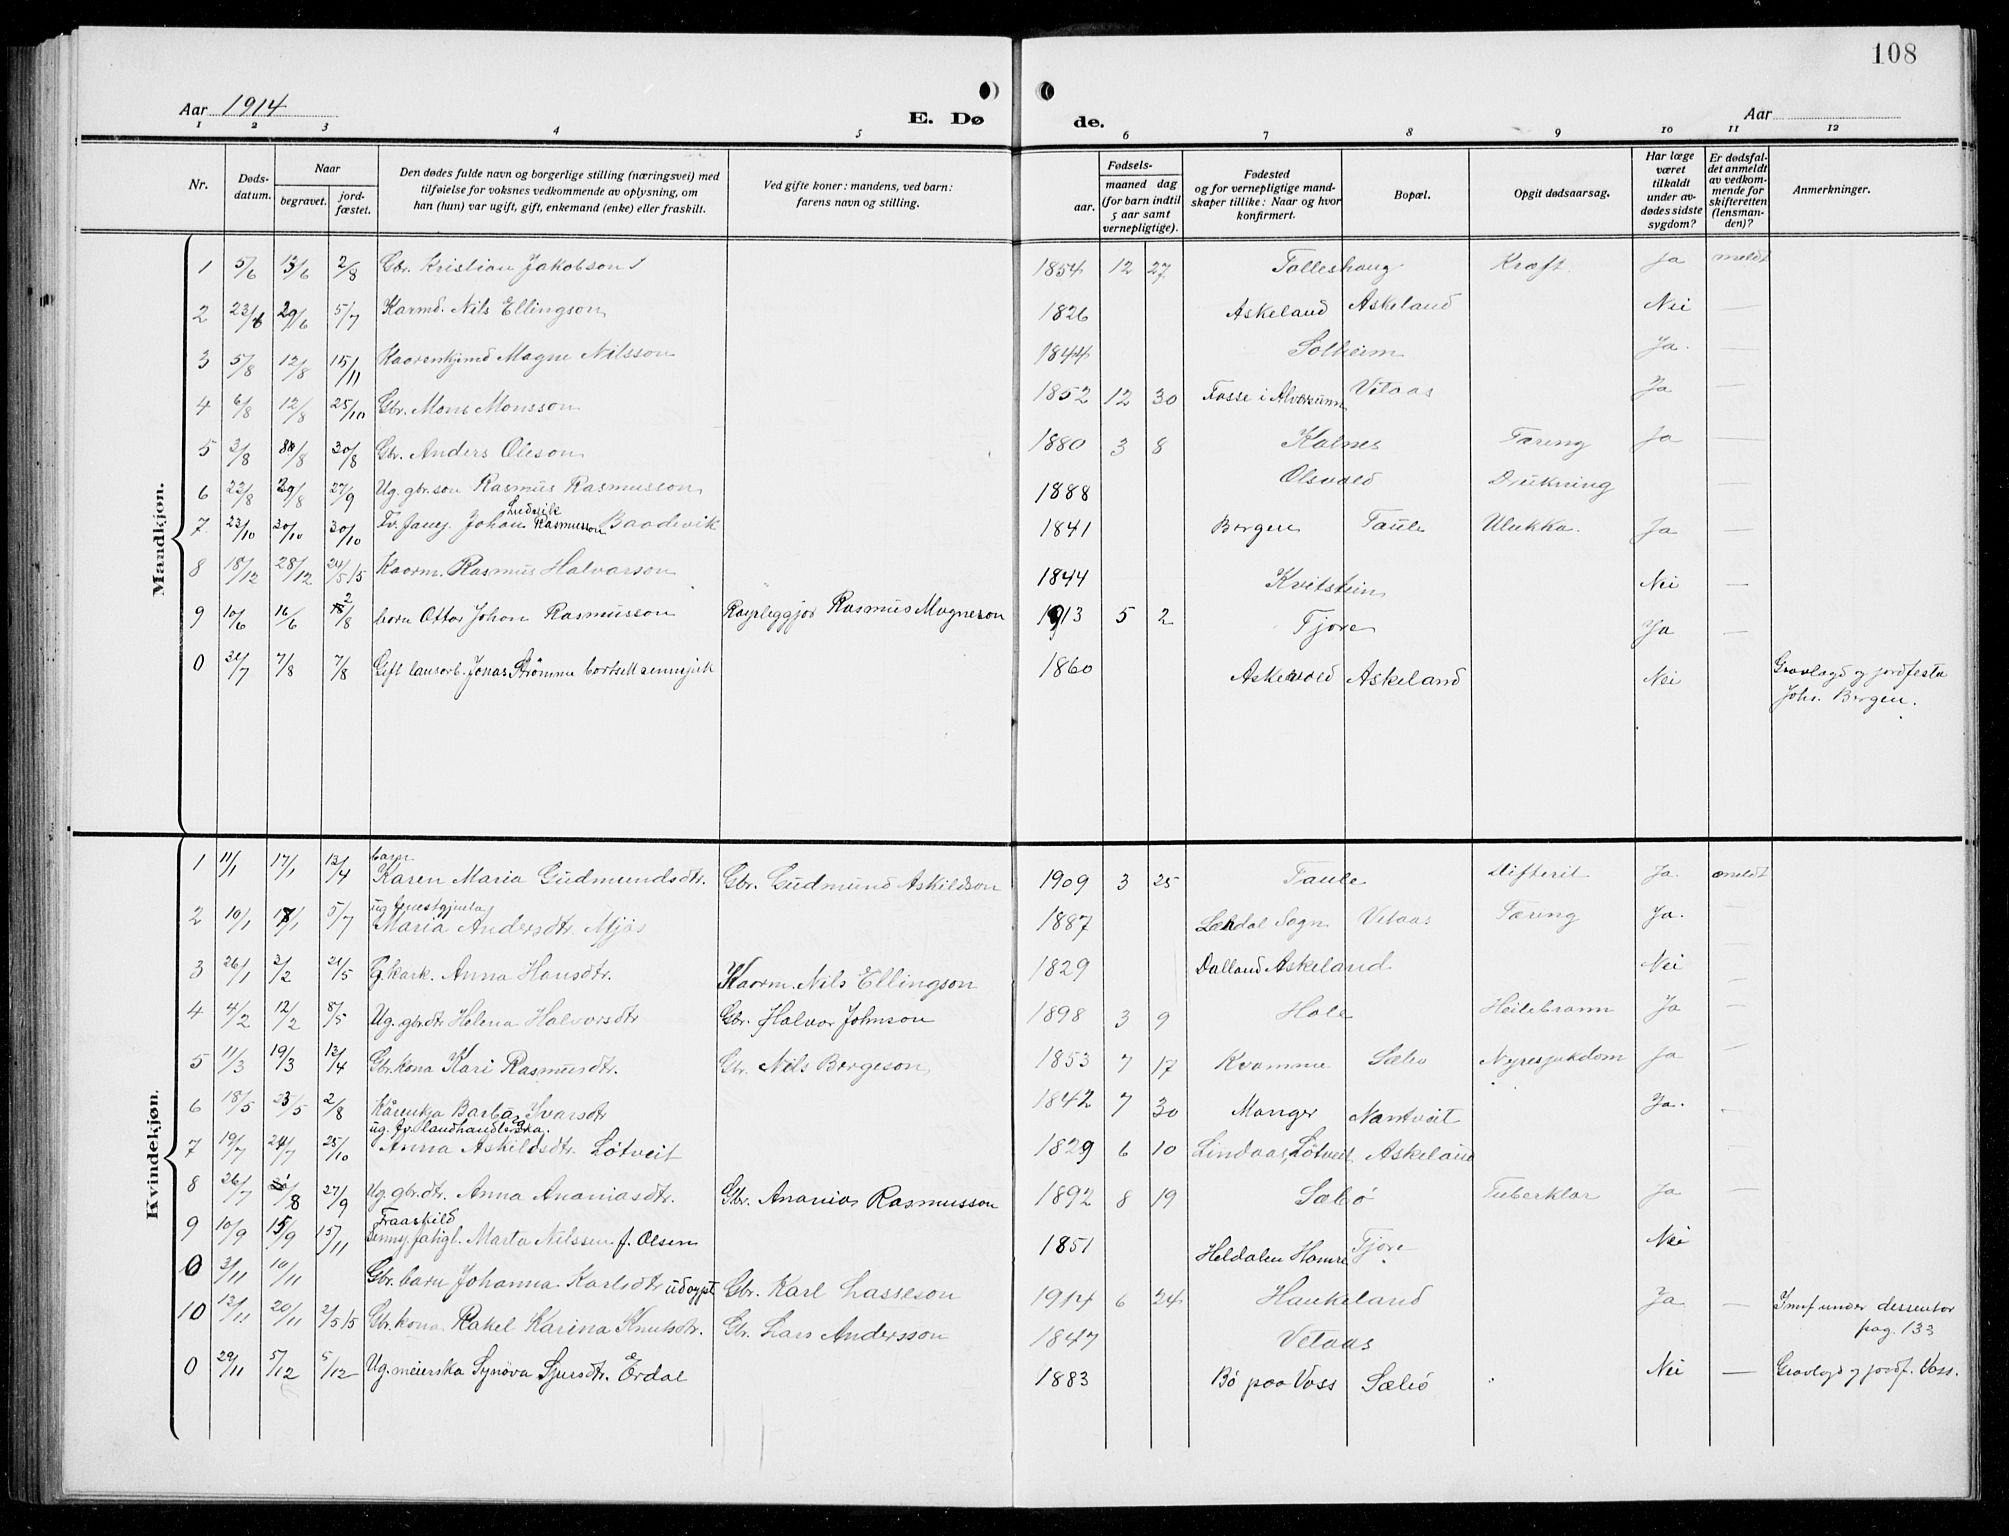 108
Aar 1914
E. Dø
de.
Aar
1 2 3 4 5 6 7 8 9 10 11 12
Nr.
Døds-
datum.
Naar
begravet.
jord-
fæstet.
Den dødes fulde navn og borgerlige stilling (næringsvei) med
tilføielse for voksnes vedkommende av oplysning, om
han (hun) var ugift, gift, enkemand (enke) eller fraskilt.
Ved gifte koner: mandens, ved barn:
farens navn og stilling.
Fødsels-
aar.
maaned dag
(for barn indtil
5 aar samt
vernepligtige).
Fødested
og for vernepligtige mand-
skaper tillike: Naar og hvor
konfirmert.
Bopæl.
Opgit dødsaarsag.
Har læge
været
tilkaldt
under av-
dødes sidste
sygdom?
Er dødsfal-
det anmeldt
av vedkom-
mende for
skifteretten
(lensman-
den)?
Anmerkninger.
Mandkjøn.
1 5/6 13/6 2/8 Gbr. Kristian Jakobson 1854 12 27 Tolleshaug Kræft Ja meldt
2 23/6 29/6 5/7 Kaarmd. Nils Ellingson 1826 Askeland Askeland Nei —
3 5/8 12/8 15/11 Magne Nilsson 1844 Solheim Ja. —
4 6/8 12/8 25/10 Gbr. Mons Monsson 1852 12 30 Fosse i Alversund Vetaas Ja —
5 3/8 8/8 30/8 Gbr. Anders Oleson 1880 3 8 Kalnes Tæring Ja —
6 22/8 29/8 27/9 Ug. gbr.son Rasmus Rasmusson 1888 Olsvold Drukning —
7 23/10 30/10 30/10 Fv. Johan Ludvik Rasmusson Baadsvik 1841 Bergen Taule Ulukka. Ja —
8 18/12 28/12 24/5 15 Kaarm. Rasmus Halvorson 1844 Kvitstein Nei —
9 10/6 16/6 2/8 born Ottar Johan Rasmusson Rasmus Magneson 1913 5 2 Fjore Ja —
0 31/7 7/8 7/8 Gift lausarb. Jonas Strømme bortsett sinnsjuk 1860 Askevold Askeland Nei Gravlagd og jordfesta
Johs. Bergen.
Kvindekjøn.
1 11/1 17/1 13/4 barn Karen Maria Gudmundsdtr. Gbr. Gudmund Askildson 1909 3 25 Taule Difterit Ja. meldt
2 10/1 17/1 5/7 ug tenestgjenta Maria Andersdtr. Mjøs 1887 Vetaas Tæring Ja. —
3 26/1 2/2 21/5 G. kark. Anna Hansdtr. Kaarm. Nils Ellingson 1829 Dalland Askeland Nei —
4 4/2 12/2 8/5 Ug. gbrdtr Helena Halvorsdtr Gbr. Halvor Johnson 1898 3 9 Hole Heilebrann Ja —
5 11/3 19/3 13/4 Gbr.kona Kari Rasmusdtr. Gbr. Nils Bergeson 1853 7 17 Kvamme Sæbø Nyresjukdom Ja —
6 18/5 23/5 2/8 Kårenkja Barbra Ivarsdtr 1842 7 30 Manger Nautveit Ja. —
7 19/7 24/7 25/10 ug. fv. landhandlerska. Anna Askildsdtr. Løtveit 1829 6 10 Lindaas, Løtveit Askeland
8 26/7 /8 27/9 Ug. gbr.dtr. Anna Ananiasdtr. Gbr. Ananias Rasmusson 1892 8 19 Sæbø Tuberklar Ja —
9 10/9 15/9 15/11 Fraaskild Marta Nilssen f. Olsen 1851 Heldalen Hamre Fjore Nei
0 3/11 10/11 Gbr. barn Johanna Karlsdtr udøypt Gbr. Karl Lasseson 1914 6 24 Haukeland Ja — Innf under dissentar
pag. 133
10 12/11 20/11 2/5 15 Gbr.kona Rakel Karina Knutsdtr. Gbr. Lars Andersson 1847 Vetaas
0 29/11 5/12 5/12 Ug. meierska Synøva Sjursdtr. Erdal 1883 Bø paa Voss Sæbø Nei — Gravlagd og jordf. Voss.